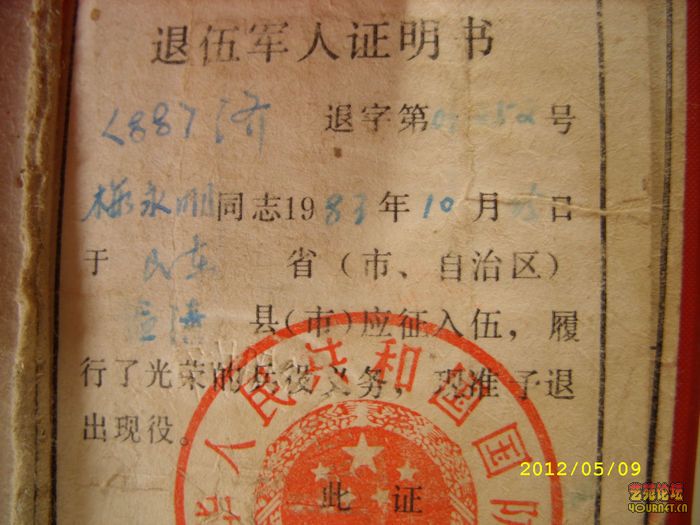 退伍军人证明书
(887济 退字第 号
永明同志1983年10月 日
于 山东 省(市、自治区)
县(市)应征入伍,履
行了光荣的兵役义务,现准予退
出现役。
人民共和国国防
此证
2012/05/09
艺苑论坛
YOURNET.CN